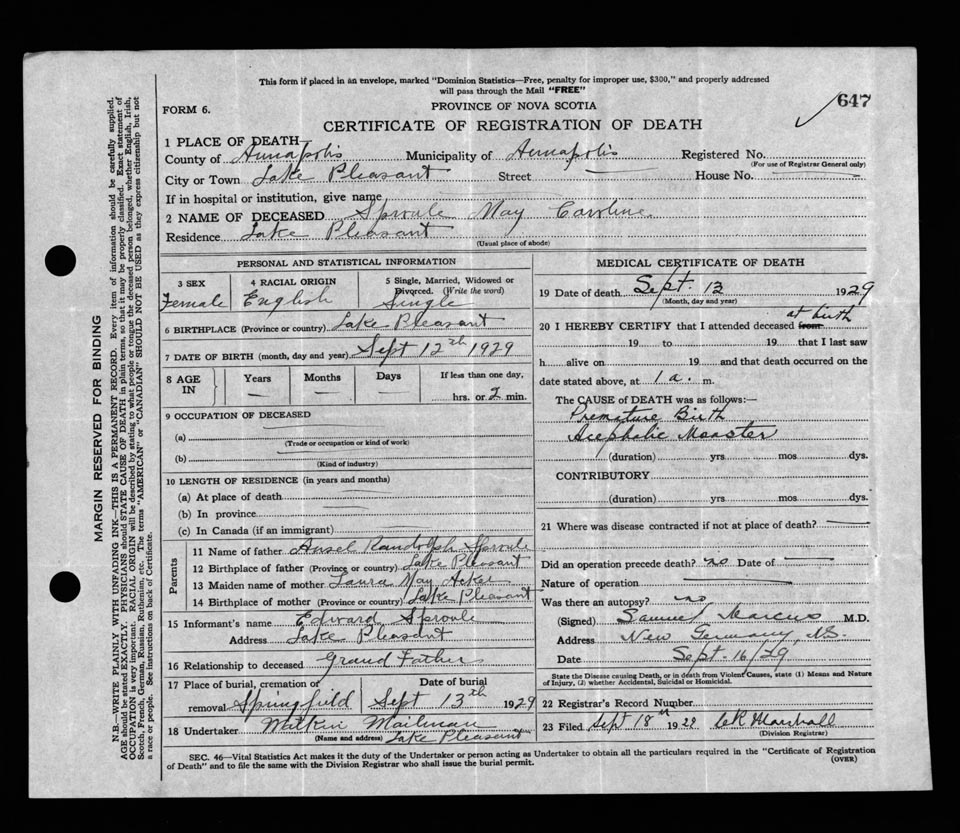 This form if placed in an envelope, marked "Dominion Statistics—Free, penalty for improper use, $300," and properly addressed
will pass through the Mail "FREE"
FORM 6.
PROVINCE OF NOVA SCOTIA
647
CERTIFICATE OF REGISTRATION OF DEATH
1 PLACE OF DEATH
County of Annapolis Municipality of Annapolis Registered No.
(For use of Registrar General only)
City or Town Lake Pleasant Street House No.
If in hospital or institution, give name
2 NAME OF DECEASED Sproule May Caroline
Residence Lake Pleasant
(Usual place of abode)
PERSONAL AND STATISTICAL INFORMATION
3 SEX
Female
4 RACIAL ORIGIN
English
5 Single, Married, Widowed or
Divorced. (Write the word)
Single
6 BIRTHPLACE (Province or country) Lake Pleasant
7 DATE OF BIRTH (month, day and year) Sept 12th 1929
8 AGE
IN
Years
Months
Days
If less than one day,
hrs. or 2 min.
9 OCCUPATION OF DECEASED
(a)
(Trade or occupation or kind of work)
(b)
(Kind of industry)
10 LENGTH OF RESIDENCE (in years and months)
(a) At place of death
(b) In province
(c) In Canada (if an immigrant)
Parents
11 Name of father Ansel Randolph Sproule
12 Birthplace of father (Province or country) Lake Pleasant
13 Maiden name of mother Laura May Acker
14 Birthplace of mother (Province or country) Lake Pleasant
15 Informant's name Edward Sproule
Address Lake Pleasant
16 Relationship to deceased Grand Father
17 Place of burial, cremation or Date of burial
removal Springfield Sept 13th 1929
18 Undertaker Mailman
(Name and address) Lake Pleasant
MEDICAL CERTIFICATE OF DEATH
19 Date of death Sept. 12 1929
(Month, day and year)
at birth
20 I HEREBY CERTIFY that I attended deceased from
19 to 19 that I last saw
h alive on 19 and that death occurred on the
date stated above, at 1 a. m.
The CAUSE of DEATH was as follows:—
Premature Birth
Acephalic Monster
(duration) yrs. mos. dys.
CONTRIBUTORY
(duration) yrs. mos. dys.
21 Where was disease contracted if not at place of death?
Did an operation precede death? no Date of
Nature of operation
Was there an autopsy? no
(Signed) Samuel Marcus M.D.
Address New Germany, N.S.
Date Sept. 16/29
State the Disease causing Death, or in death from Violent Causes, state (1) Means and Nature
of Injury, (2) whether Accidental, Suicidal or Homicidal.
22 Registrar's Record Number
23 Filed Sept 18th 1929 Marshall
(Division Registrar)
SEC. 46—Vital Statistics Act makes it the duty of the Undertaker or person acting as Undertaker to obtain all the particulars required in the "Certificate of Registration
of Death" and to file the same with the Division Registrar who shall issue the burial permit.
(OVER)
MARGIN RESERVED FOR BINDING
N.B.—WRITE PLAINLY WITH UNFADING INK—THIS IS A PERMANENT RECORD. Every item of information should be carefully supplied.
AGE should be stated EXACTLY. PHYSICIANS should STATE CAUSE OF DEATH in plain terms, so that it may be properly classified. Exact statement of
OCCUPATION is very important. RACIAL ORIGIN will be described by stating to what people or tongue the deceased person belonged, whether English, Irish,
Scotch, French, German, Russian, Ruthenian, etc. The terms "AMERICAN" or "CANADIAN" SHOULD NOT BE USED as they express citizenship but not
a race or people. See instructions on back of Certificate.